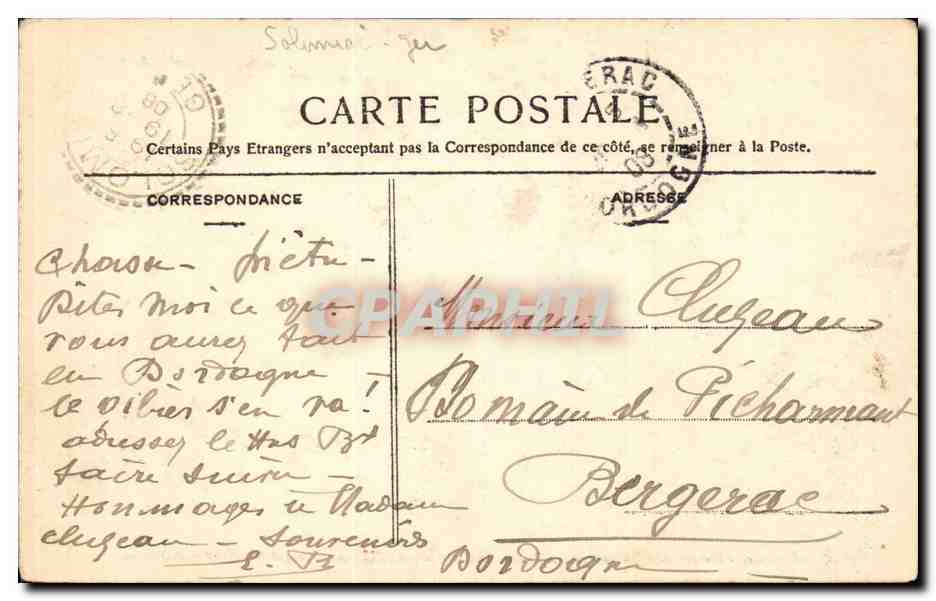 CARTE POSTALE
Certains Pays Etrangers n'acceptant pas la Correspondance de ce côté, se renseigner à la Poste.
CORRESPONDANCE
ADRESSE
ERAC
08
DORDOGNE
19
08
Chasse - piètre -
Dites moi ce que
vous aurez fait
en Dordogne -
le gibier s'en va!
adressez le
faire suivre -
Hommages à Madame
Clugeau - Souvenirs
E. B
Monsieur Clugeau
Domaine de Picharmant
Bergerac
Dordogne
CPAPHIL